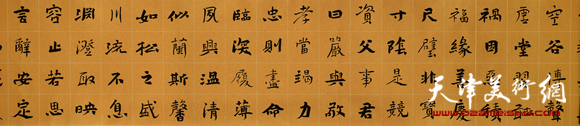 空谷傳聲
虛堂習聽
禍因惡積
福緣善慶
尺璧非寶
寸陰是競
資父事君
曰嚴與敬
孝當竭力
忠則盡命
臨深履薄
夙興溫清
似蘭斯馨
如松之盛
川流不息
淵澄取映
容止若思
言辭安定
天津美術網